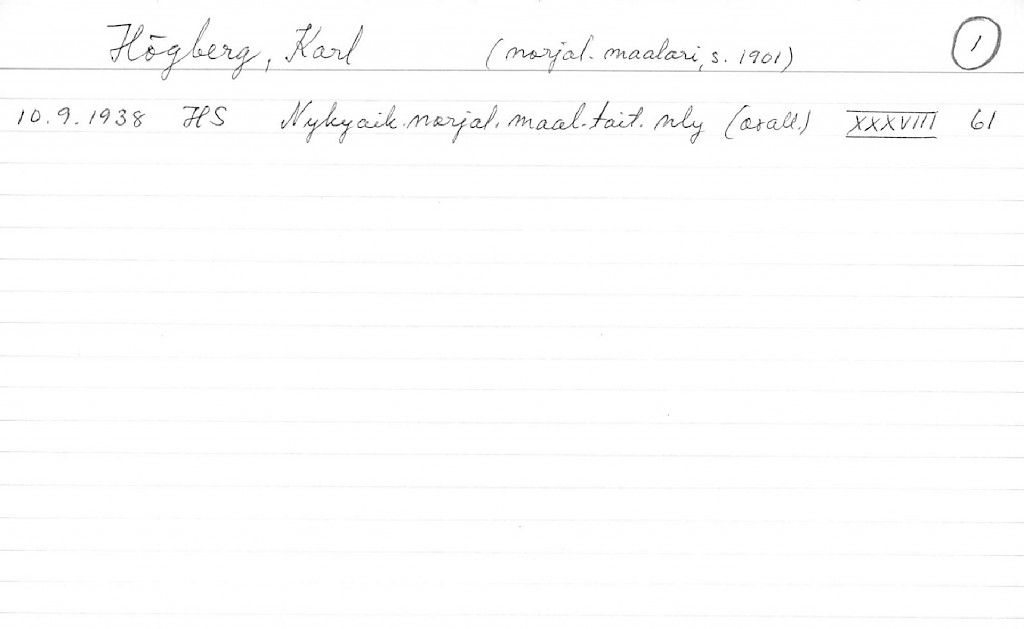 Högberg, Karl (norjal. maalari, s. 1901) 1
10.9.1938 HS Nykyaik. norjal. maal. tait. nly (osall.) XXXVIII 61